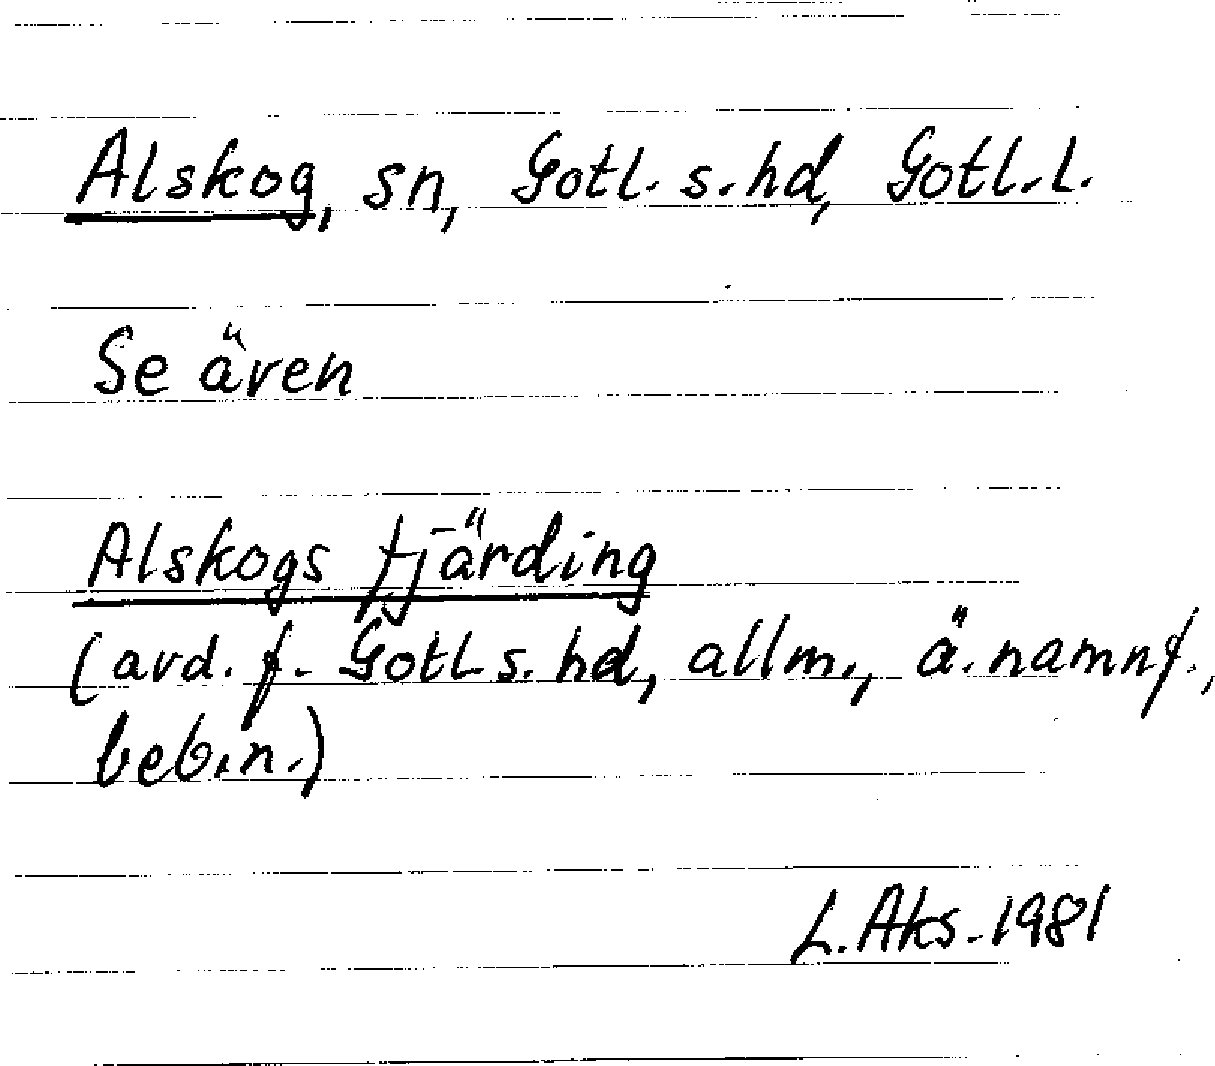 Alskog, sn, Gotl. s. hd, Gotl. l.
Se även
Alskogs fjärding
(avd. f. Gotl. s. hd, allm., ä. namnf.,
beb.n.)
L. Aks. 1981